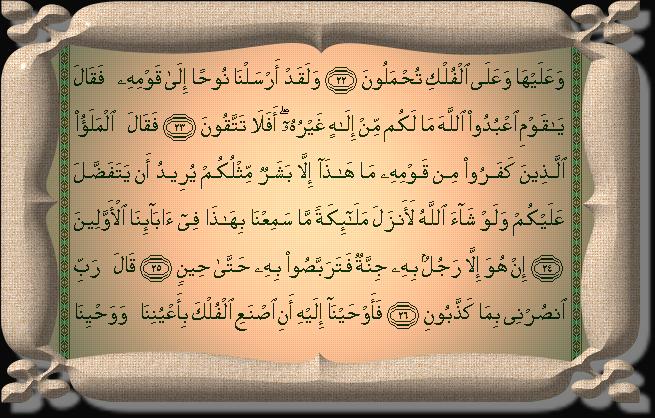 وَعَلَيْهَا وَعَلَى ٱلْفُلْكِ تُحْمَلُونَ ٢٢ وَلَقَدْ أَرْسَلْنَا نُوحًا إِلَىٰ قَوْمِهِۦ فَقَالَ
يَـٰقَوْمِ ٱعْبُدُوا۟ ٱللَّهَ مَا لَكُم مِّنْ إِلَـٰهٍ غَيْرُهُۥٓ ۖ أَفَلَا تَتَّقُونَ ٢٣ فَقَالَ ٱلْمَلَؤُا۟
ٱلَّذِينَ كَفَرُوا۟ مِن قَوْمِهِۦ مَا هَـٰذَآ إِلَّا بَشَرٌ مِّثْلُكُمْ يُرِيدُ أَن يَتَفَضَّلَ
عَلَيْكُمْ وَلَوْ شَآءَ ٱللَّهُ لَأَنزَلَ مَلَـٰٓئِكَةً مَّا سَمِعْنَا بِهَـٰذَا فِىٓ ءَابَآئِنَا ٱلْأَوَّلِينَ
٢٤ إِنْ هُوَ إِلَّا رَجُلٌۢ بِهِۦ جِنَّةٌ فَتَرَبَّصُوا۟ بِهِۦ حَتَّىٰ حِينٍ ٢٥ قَالَ رَبِّ
ٱنصُرْنِى بِمَا كَذَّبُونِ ٢٦ فَأَوْحَيْنَآ إِلَيْهِ أَنِ ٱصْنَعِ ٱلْفُلْكَ بِأَعْيُنِنَا وَوَحْيِنَا